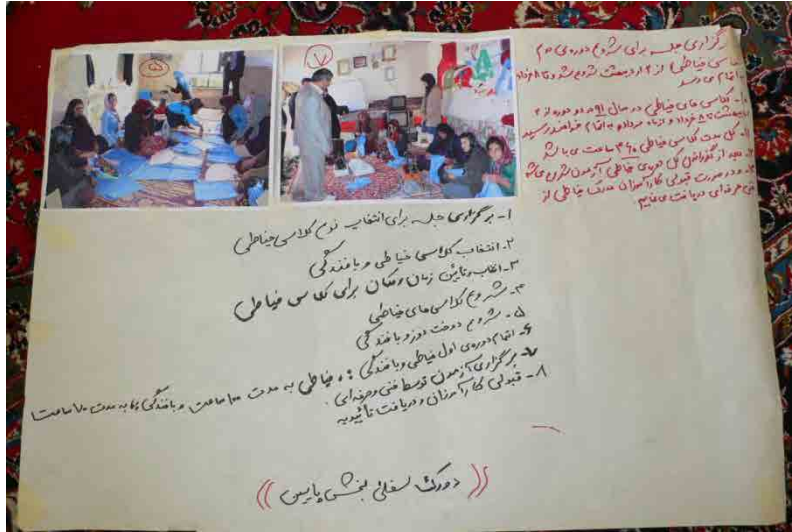 ۵
۷
برگزاری جلسه برای شروع دوره‌ی دوم
کلاسی خیاطی از ۲ اردیبهشت شروع شد و تا ۸ خرداد
به اتمام می رسد
کلاسی های خیاطی در سال ۹۱ در دو دوره از ۲
اردیبهشت تا ۸ خرداد و تا مرداد به اتمام خواهند رسید
کل مدت کلاسی خیاطی ساعت می باشد
بعد از گذراندن کل دوره‌ی خیاطی آزمون
و در صورت قبولی کارآموزان مدرک خیاطی از
فنی حرفه‌ای دریافت می نماییم.
۱- برگزاری جلسه برای انتخاب نوع کلاسی خیاطی
۲- انتخاب کلاسی خیاطی و بافندگی
۳- انتخاب و تایین زمان و مکان برای کلاسی خیاطی
۴- شروع کلاسی های خیاطی
۵- شروع دوخت دوز و بافندگی
۶- اتمام دوره‌ی اول خیاطی و بافندگی: خیاطی به مدت ۱۰۰ ساعت و بافندگی به مدت ساعت
۷- برگزاری آزمون توسط فنی و حرفه‌ای.
۸- قبولی کارآموزان و دریافت تائیدیه
(( دورک سفلی بخش پایین ))